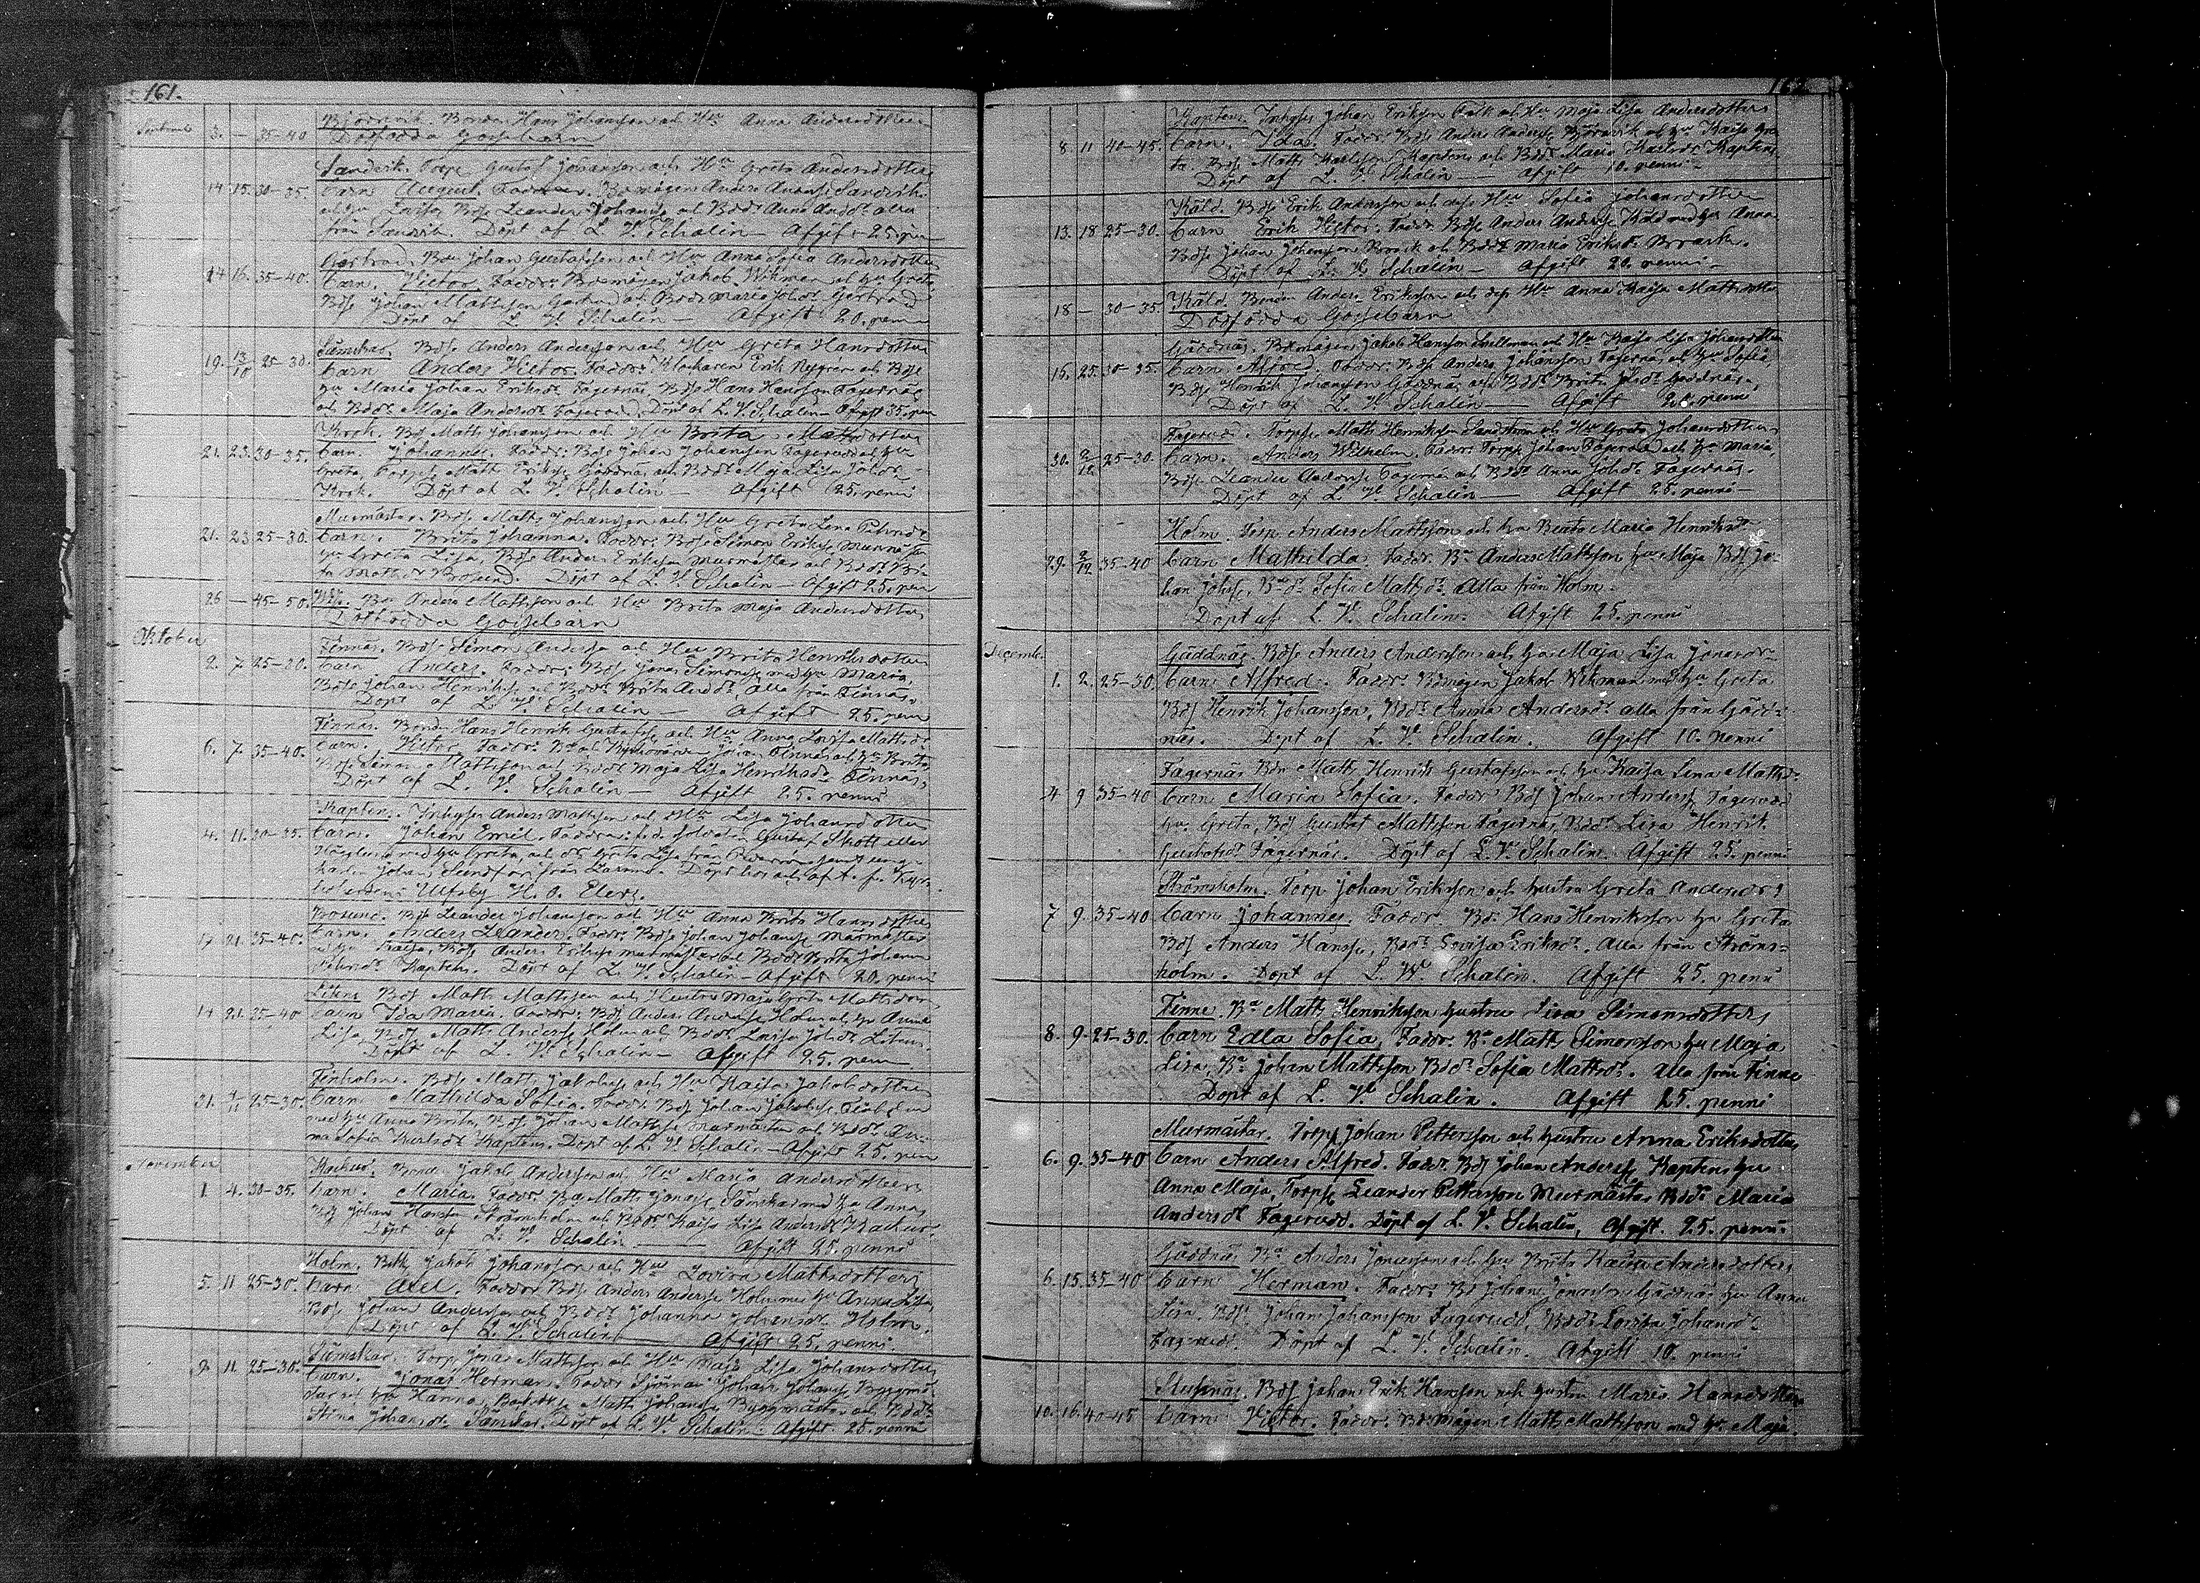 161.
September 3. — 35-40 Björnvik. Bonden Hans Johansson och Hu Anna Andersdotter
Dödfödda Gossebarn
Sandvik. Torp. Gustaf Johansson och Hu Greta Andersdotter
14 15. 30-35. barn August. Faddrar. Bdemågen Anders Anderss. Sandvik
och hu Lovisa, Bds. Leander Johanss. och Bdedr Anna Andsdr alla
från Sandvik. Döpt af L. W. Schalin — Afgift 25. penni
Gertrud. Bde Johan Gustafsson och Hu Anna Sofia Andersdotter
14 16. 35-40. barn. Victor. Faddr: Bdemågen Jakob Wikman och hu Greta
Bds. Johan Mattsson Gertrud och Bdedr Maria Johsdr Gertrud
Döpt af L. W. Schalin — Afgift 20. penni
Sämskar. Bds. Anders Andersson och Hu Greta Hansdotter
19. 13/10 25-30. barn Anders Victor. Faddr: Klockaren Erik Nygren och Bds.
hu Maria Johan Eriksdr Fagernäs Bds. Hans Hansson Fagernäs
och Bdedr Maja Andersdr Fagerudd. Döpt af L. W. Schalin Afgift 35. pen
Krok. Bds Matts Johansson och Hu Brita Mattsdotter
21. 23. 30-35. barn. Johannes. Faddr: Bds Johan Johansson Fagerudd och hu
Greta, Torps. Matts Erikss. Gäddnäs, och Bdedr Maja Lisa Johsdr
Krok. Döpt af L. W. Schalin — Afgift 25. penni
Murmästar. Bds. Matts Johansson och Hu Greta Lena Pettersdr
21. 23 25-30. barn. Brita Johanna. Faddr: Bds Simon Erikss.
hu Greta Lisa, Bds. Anders Eriksson Murmästar och Bdedr Bri-
ta Mattsdr Brosund. Döpt af L. W. Schalin — Afgift 25. pen
26 — 45-50. Bde Anders Mattsson och Hu Brita Maja Andersdotter
Dödfödda Gossebarn
Oktober
Finnäs. Bds. Simon Anderss. och Hu Brita Henriksdotter
2. 7. 25-30. barn Anders. Faddr: Bds Jonas Simonss. med hu Maria,
Bds. Johan Henrikss. och Bdedr Brita Andsdr alla från Finnäs.
Döpt af L. W. Schalin — Afgift 25. penn
Finnäs. Bonden Hans Henrik Gustafss. och Hu Anna Lovisa Mattsdr
6. 7. 35-40. barn. Victor. Faddr: Johan Finnäs och hu Brita
Bds. Simon Mattsson och Bdedr Maja Lisa Henriksdr Finnäs,
Döpt af L. W. Schalin — Afgift 25. penni
Kaptens. Inhyses Anders Mattsson och Hu Lisa Johansdotter
4. 11. 30-35. barn. Johan Emil. Faddrar: f. d. soldat Gustaf Skott eller
Höglund med hu Greta, och dr Greta Lisa från
karlen Johan Sundfors från Larsmo. Döpt
H. O. Elers.
Brosund. Bds Leander Johansson och Hu Anna Brita Hansdotter
17 21. 35-40. barn. Anders Leander. Faddr: Bds Johan Johanss. Murmästar
och hu Kaisa, Bds. Anders Erikss. Murmästar och Bdedr Brita Johanna
Pettersdr Kaptens. Döpt af L. W. Schalin — Afgift 20. penni
Litens Bds Matts Mattsson och Hustru Maja Greta Mattsdotter
14 21. 35-40 barn Ida Maria. Faddr: Bds Anders Anderss. Holm och hu Anna
Lisa, Bds Matts Anderss. Holm och Bdedr Lovisa Johsdr Litens.
Döpt af L. W. Schalin — Afgift 25. pen
Finholm. Bds. Matts Jakobss. och Hu Kaisa Jakobsdotter
31. 4/11 25-30. barn. Mathilda Sofia. Faddr: Bds Johan Jakobss. Finholm
med hu Anna Brita, Bds. Johan Mattss. Murmästar och Bdedr An-
na Sofia Karlsdr Kaptens. Döpt af L. W. Schalin — Afgift 25. pen
November
Backus. Bonden Jakob Andersson och Hu Maria Andersdotter
1. 4. 30-35. barn. Maria. Faddr: Bde Matts Jonass. Sämskar med hu Anna,
Bds Johan Hansson Strömsholm och Bdedr Kaisa Lisa Andersdr Backus.
Döpt af L. W. Schalin — Afgift 25. penni
Holm. Jakob Johansson och Hu Lovisa Mattsdotter
5. 11 25-30. barn Axel. Faddr Bds Anders Anderss. Holm med hu Anna Lisa,
Bds Johan Andersson och Bdedr Johanna Johansdr Holm.
Döpt af L. W. Schalin — Afgift 25. penni.
Sämskar. Torp. Jonas Mattsson och Hu Maja Lisa Johansdotter
9. 11. 25-30. barn. Jonas Herman. Faddr Sjöman Johan Johanss. Byggmä-
star och hu Hanna, Matts Johanss. Byggmästar och Bdedr
Stina Johansdr Sämskar. Döpt af L. W. Schalin. Afgift. 25. penni
162.
Kaptens. Inhyses Johan Eriksson Falk och Hu Maja Lisa Andersdotter
8 11 40-45. barn. Ida. Faddr: Bds Anders Anderss. Björnvik och hu Kaisa Gre-
ta. Bds. Matts Karlsson Kaptens och Bdedr Maria Karlsdr Kaptens.
Döpt af L. W. Schalin — Afgift 10. penni
Käld. Bds Erik Andersson och dess Hu Sofia Johansdotter
13. 18 25-30. barn Erik Victor. Faddr: Bds. Anders Anderss. Käld med hu Anna
Bds. Johan Johansson och Bdedr Maria Eriksdr
Döpt af L. W. Schalin — Afgift 20. penni
18 — 30-35. Käld. Bonden Anders Eriksson och dess Hu Anna Kaisa Mattsdotter
Dödfödda Gossebarn
Gäddnäs. Bdemågen Jakob Hansson och Hu Kaisa Lisa Johansdotter
16. 25. 30-35. barn Alfred. Faddr: Bds Anders Johansson Fagernäs och hu Sofia,
Bds. Henrik Johansson Gäddnäs och Bdedr Brita Johsdr Gäddnäs.
Döpt af L. W. Schalin — Afgift 20. penni
Fagerudd. Torps. Matts Henriksson Sandström och Hu Greta Johansdotter
30. 2/12 25-30. barn. Anders Wilhelm. Faddr: Torps Johan Fagerudd och hu Maria,
Bds. Leander Anderss. Fagernäs och Bdedr Anna Johsdr Fagernäs.
Döpt af L. W. Schalin — Afgift 25. penni
Holm. Torp Anders Mattsson och hu Beata Maria Henriksdr
29. 2/12 35-40 barn Mathilda. Faddr. Be Anders Mattsson hu Maja Bds Jo-
han Johss, Bdedr Sofia Mattsdr. Alla från Holm.
Döpt af L. W. Schalin. Afgift 25. penni
Decemb.
Gäddnäs. Bds Anders Andersson och hu Maja Lisa Jonasdr
1. 2. 25-30. barn Alfred. Faddr. Bdemågen Jakob Wikman med hu Greta
Bds Henrik Johansson, Bdedr Anna Andersdr alla från Gädd-
näs. Döpt af L. W. Schalin. Afgift 10. penni
Fagernäs Bde Matts Henrik Gustafsson och hu Kaisa Lena Mattsdr
4 9 35-40 barn Maria Sofia. Faddr Bds Johan Anderss. Fagerudd
hu. Greta, Bds Gustaf Mattsson Fagernäs, Bdedr Lisa Henrik
Gustafsdr Fagernäs. Döpt af L. W. Schalin. Afgift 25. penni
Strömsholm. Torp Johan Eriksson och hustru Greta Andersdr
7 9. 35-40 barn Johannes. Faddr. Bde Hans Henriksson hu Greta
Bds Anders Hanss., Bdedr Lovisa Eriksdr. Alla från Ströms-
holm. Döpt af L. W. Schalin. Afgift 25. penni
Finne. Be Matts Henriksson hustru Lisa Simonsdotter
8. 9. 25-30. barn Edla Sofia, Faddr. Be Matts Simonsson hu Maja
Lisa, Be Johan Mattsson Bdedr Sofia Mattsdr. alla från Finne
Döpt af L. W. Schalin. Afgift 25. penni
Murmästar. Torp. Johan Pettersson och hustru Anna Eriksdotter
6. 9. 35-40 barn Anders Alfred. Faddr. Bds Johan Anderss. Kaptens hu
Anna Maja, Torps. Leander Pettersson Murmästar Bdedr Maria
Andersdr Fagerudd. Döpt af L. W. Schalin, Afgift. 25. penni.
Gäddnäs Be Anders Jonasson och hu Brita Kaisa Andersdotter
6. 15. 35-40 barn Herman. Faddr: Bd Johan Jonasson Gäddnäs hu Anna
Lisa. Bds. Johan Johansson Fagerudd, Bdedr Lovisa Johansdr
Fagerudd. Döpt af L. W. Schalin. Afgift 10. penni
Slussnäs. Bds Johan Erik Hansson och hustru Maria Hansdotter
10. 16. 40-45 barn Victor. Faddr: Bdemågen Matts Mattsson med hu Maja.